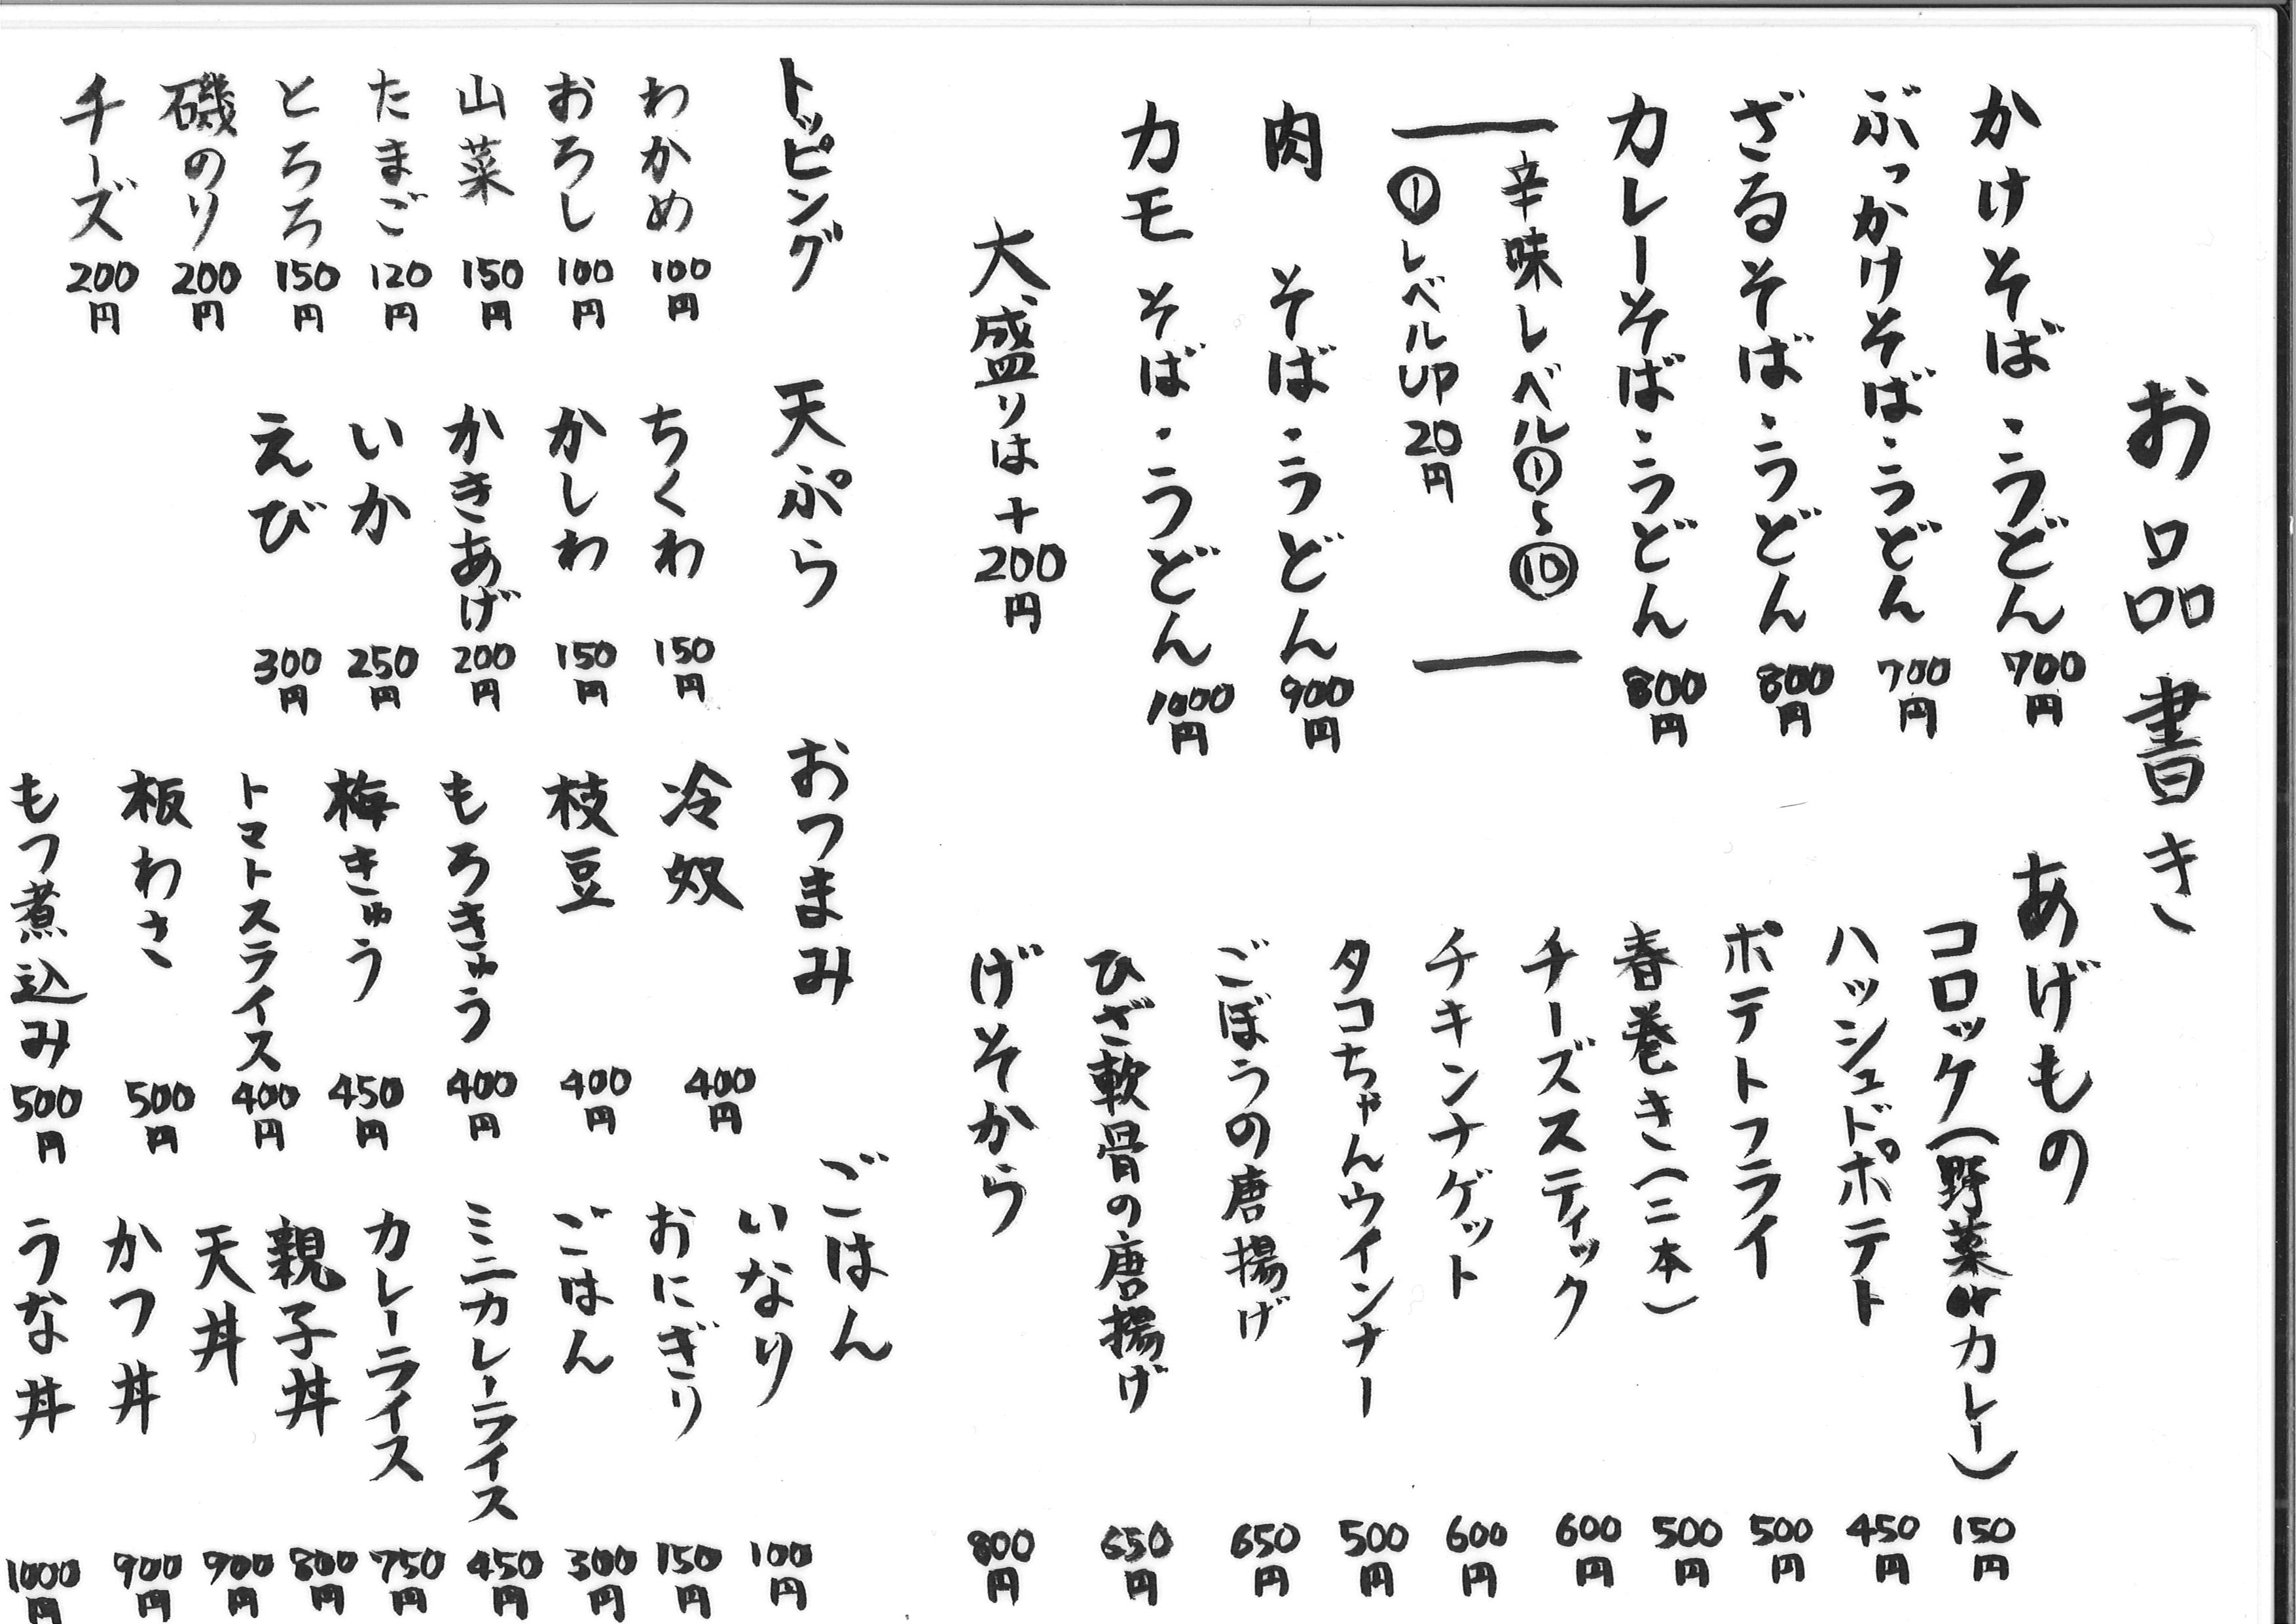 お品書き
かけそば・うどん 700円
ぶっかけそば・うどん 700円
ざるそば・うどん 800円
カレーそば・うどん 800円
辛味レベル①〜⑩
①レベルUP 20円
肉 そば・うどん 900円
カモ そば・うどん 1000円
大盛りは+200円
あげもの
コロッケ(野菜orカレー) 150円
ハッシュドポテト 450円
ポテトフライ 500円
春巻き(二本) 500円
チーズスティック 600円
チキンナゲット 600円
タコちゃんウインナー 500円
ごぼうの唐揚げ 650円
ひざ軟骨の唐揚げ 650円
げそから 800円
トッピング
わかめ 100円
おろし 100円
山菜 150円
たまご 120円
とろろ 150円
磯のり 200円
チーズ 200円
天ぷら
ちくわ 150円
かしわ 150円
かきあげ 200円
いか 250円
えび 300円
おつまみ
冷奴 400円
枝豆 400円
もろきゅう 400円
梅きゅう 450円
トマトスライス 400円
板わさ 500円
もつ煮込み 500円
ごはん
いなり 100円
おにぎり 150円
ごはん 300円
ミニカレーライス 450円
カレーライス 750円
親子丼 800円
天丼 900円
かつ丼 900円
うな丼 1000円